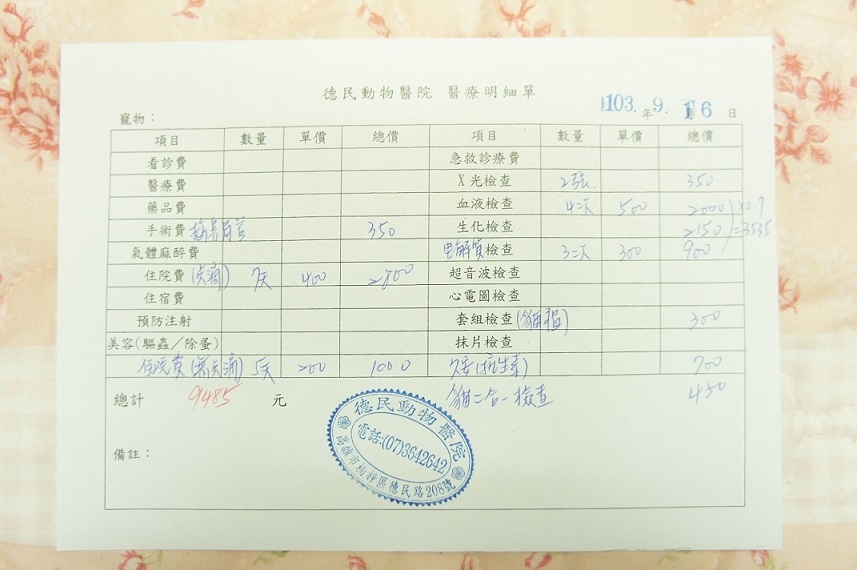 德民動物醫院 醫療明細單
103.年9.月16日
寵物：
項目 數量 單價 總價 項目 數量 單價 總價
看診費 急救診療費
醫療費 X光檢查 2張. 350
藥品費 血液檢查 4次 500 2000 ×0.7
手術費 350 生化檢查 2150 =3535
氣體麻醉費 电解質檢查 3次 300 900
住院費(点滴) 7天 400 2800 超音波檢查
住宿費 心電圖檢查
預防注射 套組檢查(貓瘟) 300
美容(驅蟲／除蚤) 抹片檢查
住院費(無点滴) 5天 200 1000 (抗生素) 700
總計 9485 元 貓二合一檢查 450
備註：
德民動物醫院
電話:(07)3642642
高雄市楠梓區德民路208號